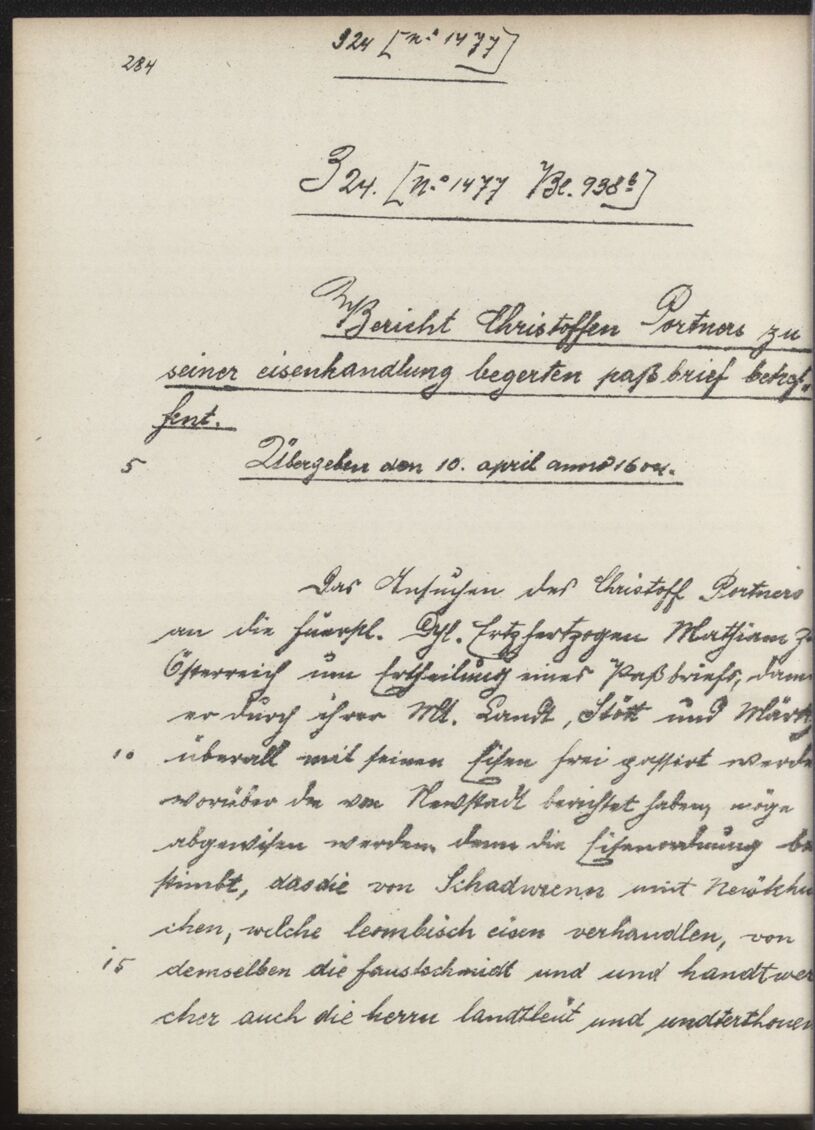 284
324 [n.° 1477]
324. [N.° 1477 Bl. 938b]
Bericht Christoffen Portners zu
seiner eisenhandlung begerten paßbrief betref„
fent.
5 Übergeben den 10. april anno 1604.
Das Ansuchen des Christoff Portners
an die fuerstl. Dhl. Ertzhertzogen Mathiam
Österreich um Ertheilung eines Paßbriefs, dam
er durch ihrer Mt. Landt, Stött und Märkt
10 überall mit seinen Eisen frei passirt werde
worüber die von Newstadt berichtet haben, möge
abgewisen werden, denn die Eisenordnung be
stimbt, das die von Schadwienn mit Newkhu
chen, welche leombisch eisen verhandlen, von
15 demselben die faustschmidt und und handtwer
cher auch die herrn landtleüt und undterthonen